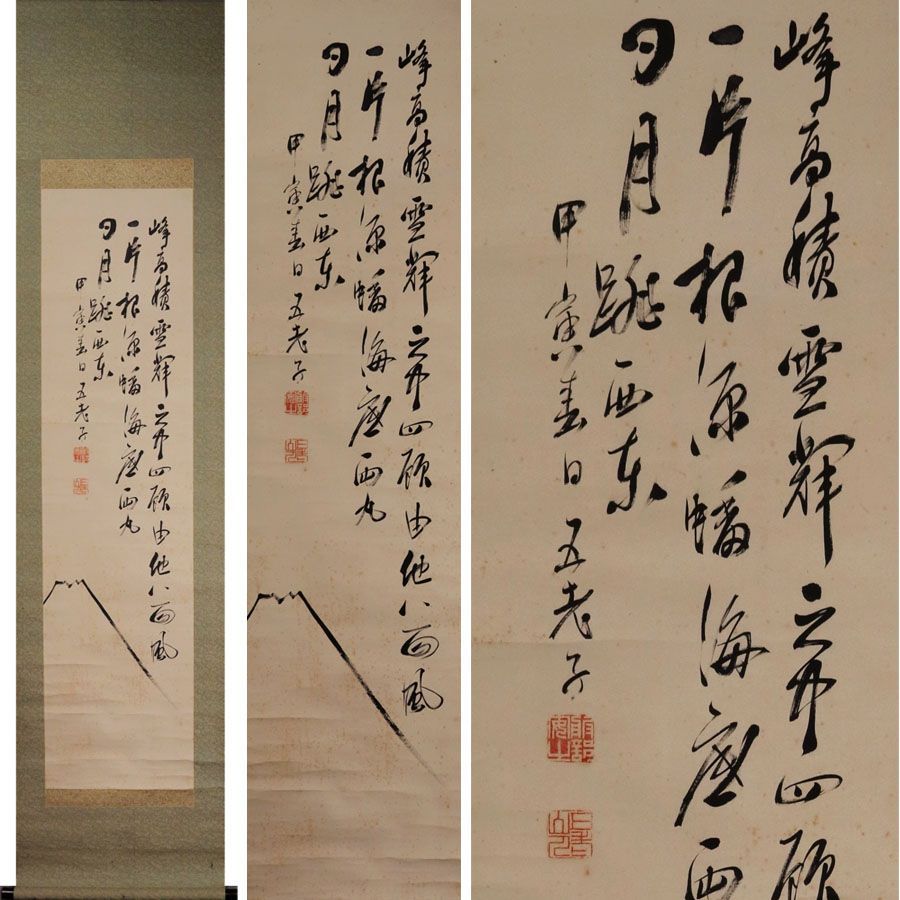 峰高積雪輝四顧由他八面風
一片根源蟠海底両丸
日月跳西東
甲寅春日五老子
峰高積雪輝四顧由他八面風
一片根源蟠海底両丸
日月跳西東
甲寅春日五老子
峰高積雪輝四顧
一片根源蟠海底両
日月跳西東
甲寅春日五老子